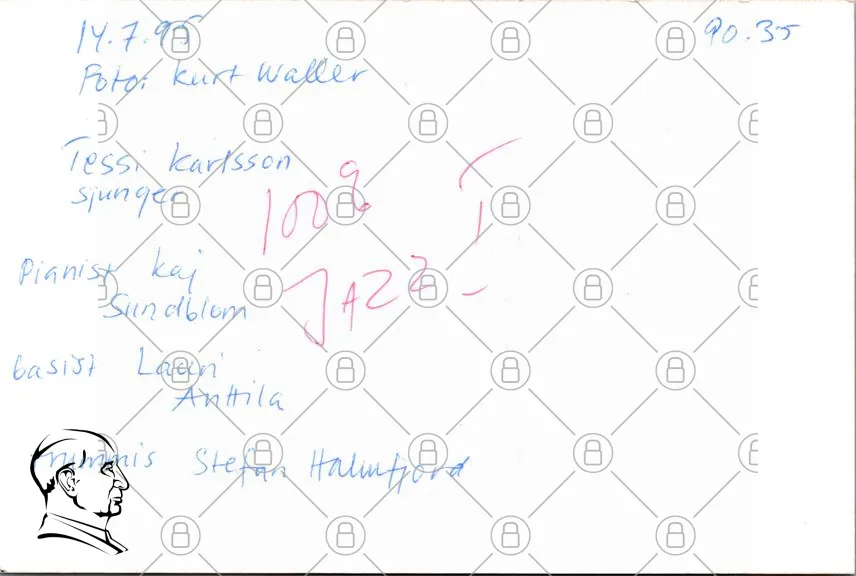 14.7.95
90.35
Foto: Kurt Waller
Tessi Karlsson
sjunger
100%
I
pianist Kaj
Sundblom
JAZZ -
basist Lauri
Anttila
trummis Stefan Halmfjord